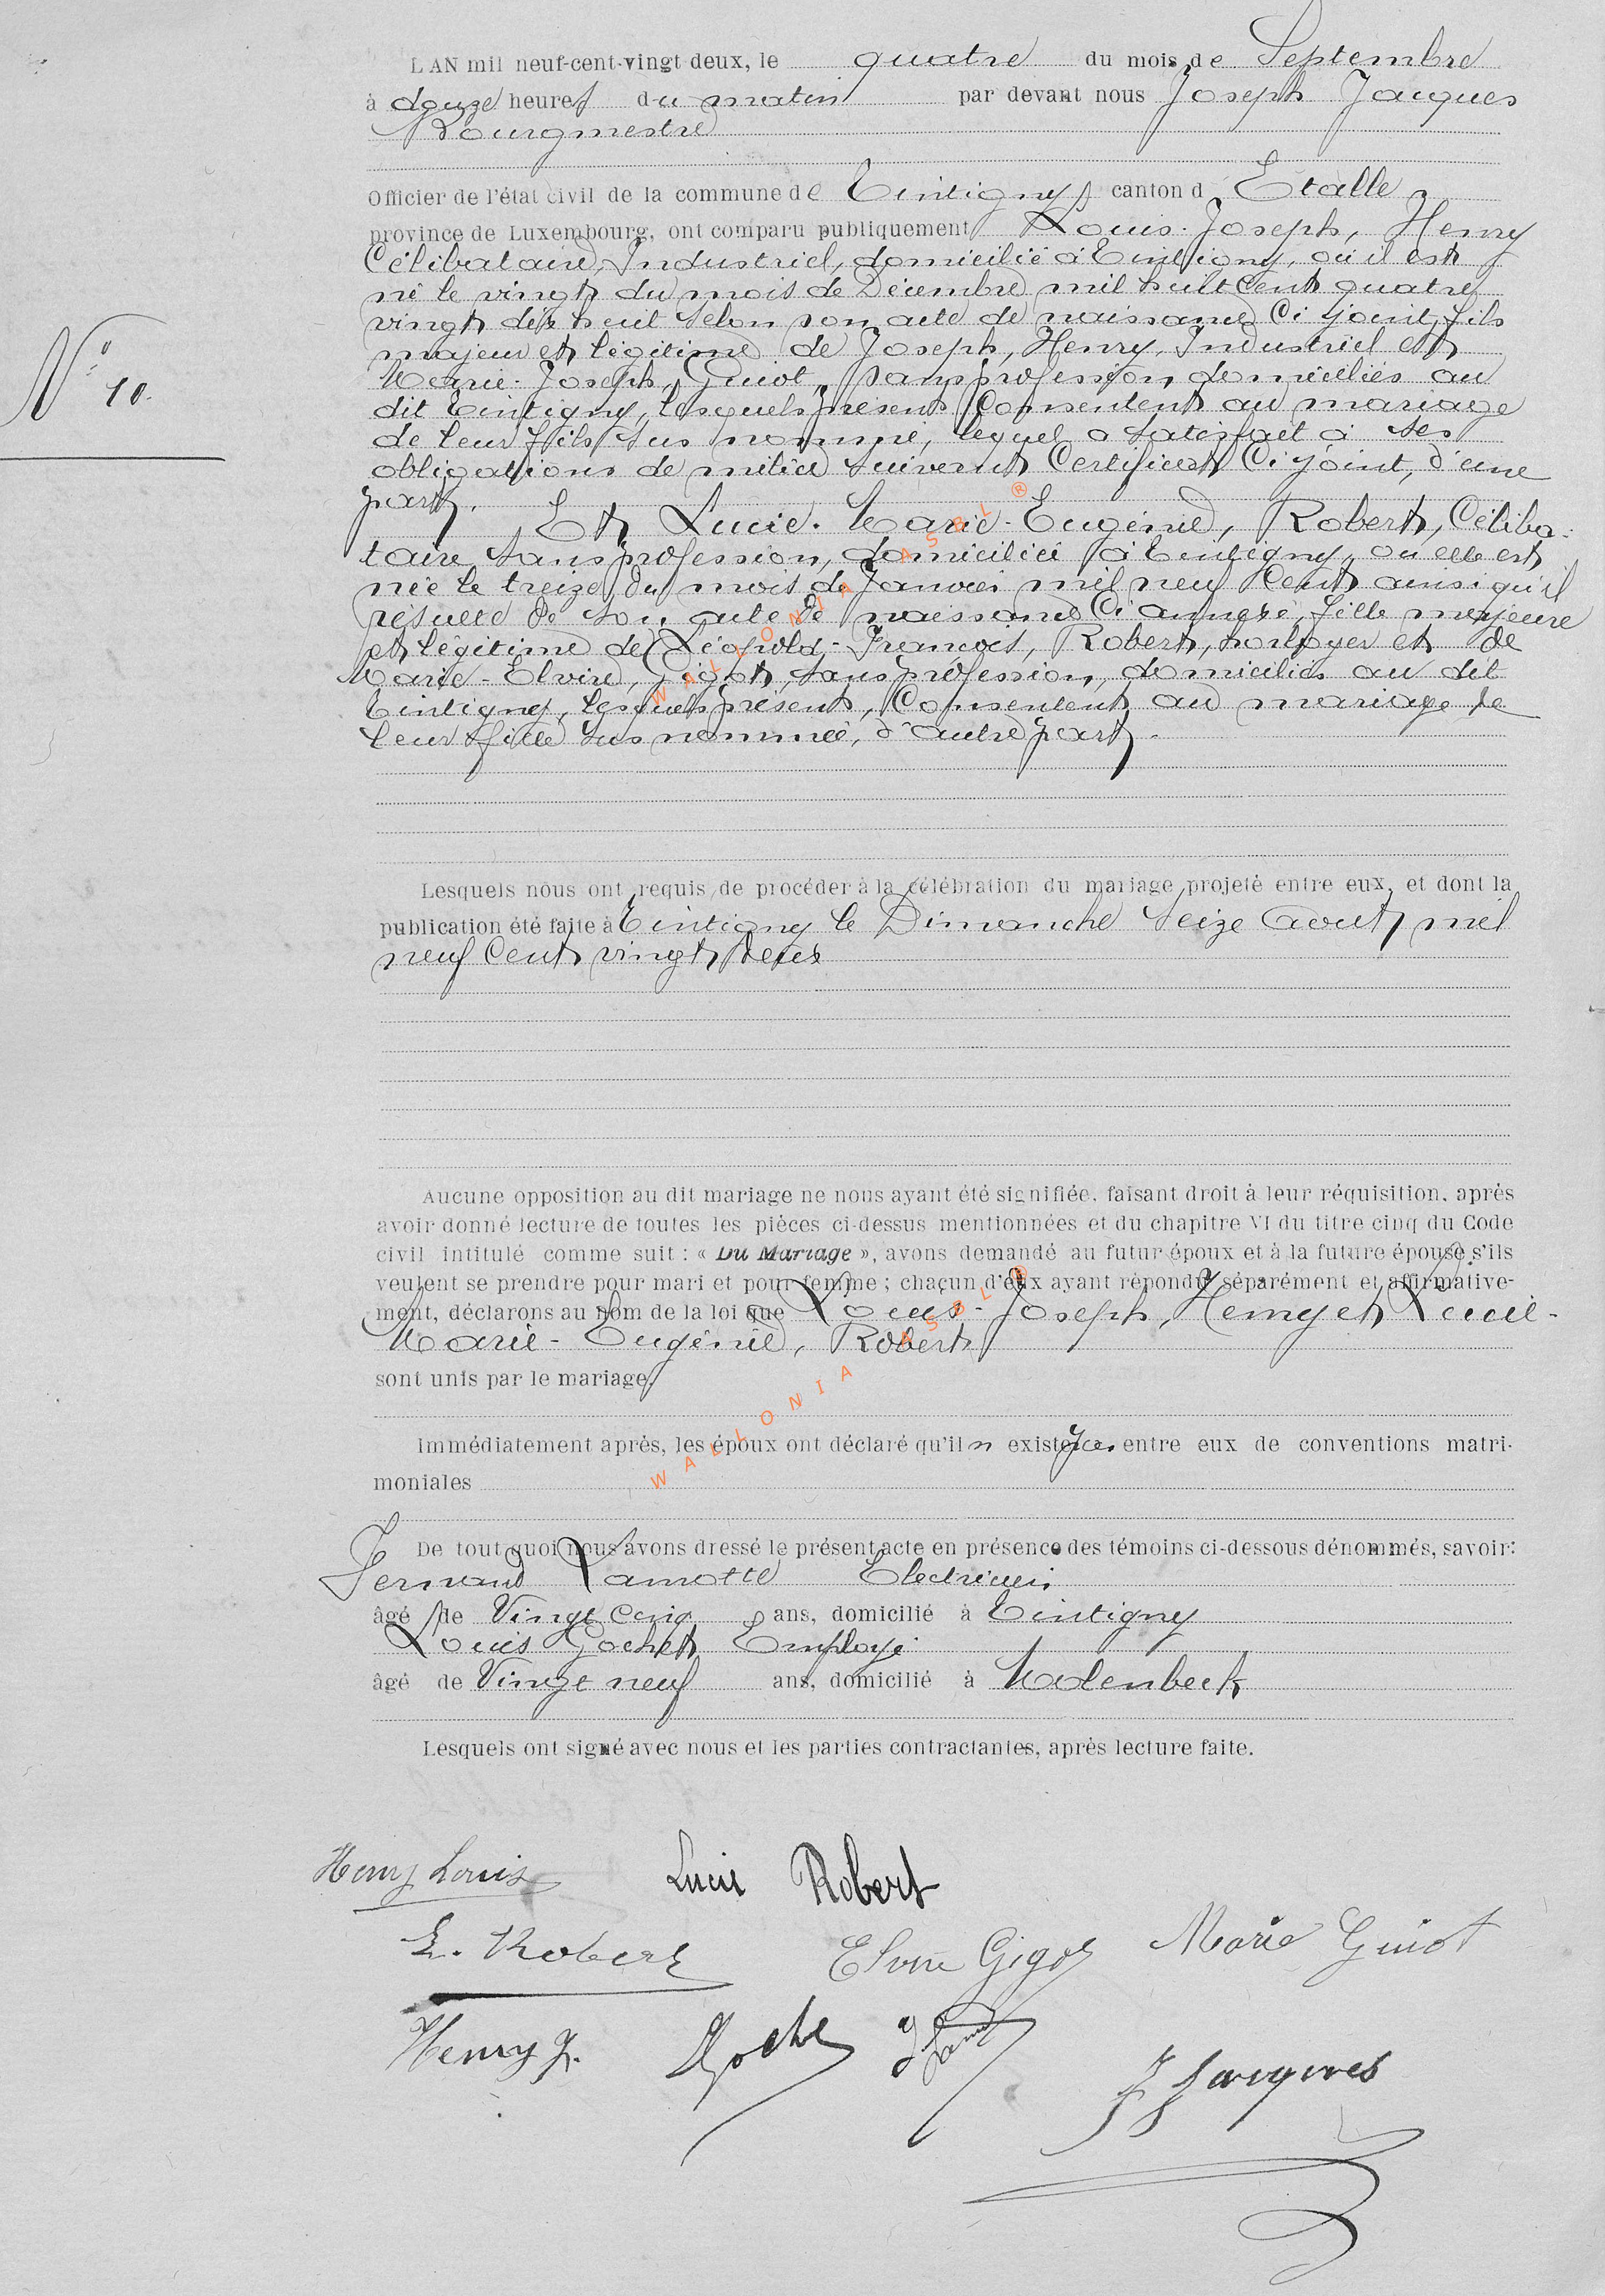 L'AN mil neuf-cent-vingt deux, le quatre du mois de Septembre
à douze heures du matin par devant nous Joseph Jacques
Bourgmestre
Officier de l'état civil de la commune de Tintigny canton d Etalle
province de Luxembourg, ont comparu publiquement Louis-Joseph, Henry
Célibataire, Industriel, domicilié à Tintigny, où il est
né le vingt du mois de Décembre mil huit Cent quatre
vingt dix huit selon son acte de naissance Ci joint, fils
majeur et légitime de Joseph, Henry, Industriel et
Marie-Joseph, Guiot, sans profession, domiciliés au
dit Tintigny, lesquels présents Consentent au mariage
de leur fils sus nommé, lequel a satisfait à ses
obligations de milice suivant Certificat Ci joint, d'une
part.
Et Lucie-Marie-Eugénie, Robert, Céliba-
taire sans profession, domiciliée à Tintigny, où elle est
née le treize du mois de Janvier mil neuf Cent ainsi qu'il
résulte de son acte de naissance Ci annexé, fille majeure
et légitime de Léopold-François, Robert, horloger et de
Marie-Elvire, Gigot, sans profession, domiciliés au dit
Tintigny, lesquels présents, Consentent au mariage de
leur fille sus nommée, d'autre part.
N° 10.
Lesquels nous ont requis de procéder à la célébration du mariage projeté entre eux, et dont la
publication été faite à Tintigny le Dimanche Seize Août mil
neuf Cent vingt deux
Aucune opposition au dit mariage ne nous ayant été signifiée, faisant droit à leur réquisition, après
avoir donné lecture de toutes les pièces ci-dessus mentionnées et du chapitre VI du titre cinq du Code
civil intitulé comme suit : « Du Mariage », avons demandé au futur époux et à la future épouse s'ils
veulent se prendre pour mari et pour femme ; chacun d'eux ayant répondu séparément et affirmative-
ment, déclarons au nom de la loi que Louis-Joseph, Henry et Lucie-
Marie-Eugénie, Robert
sont unis par le mariage.
Immédiatement après, les époux ont déclaré qu'il n existe pas entre eux de conventions matri-
moniales
De tout quoi nous avons dressé le présent acte en présence des témoins ci-dessous dénommés, savoir:
Fernand Lamotte Electricien
âgé de Vingt Cinq ans, domicilié à Tintigny
Louis Gochet Employé
âgé de Vingt neuf ans, domicilié à Molenbeek
Lesquels ont signé avec nous et les parties contractantes, après lecture faite.
Henry Louis Lucie Robert
L. Robert Elvire Gigot Marie Guiot
Henry J. LGochet J Jacques
WALLONIA ASBL ®
WALLONIA ASBL ®